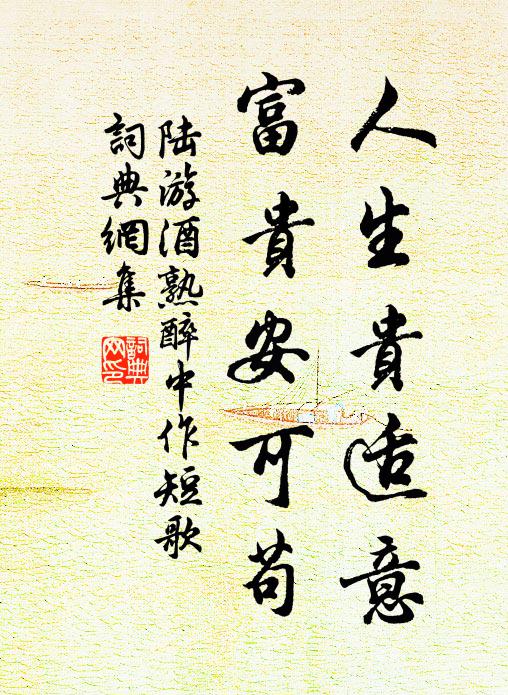 人生貴適意
富貴安可苟
陸游酒熟醉中作短歌
詞典網集
詞典网印